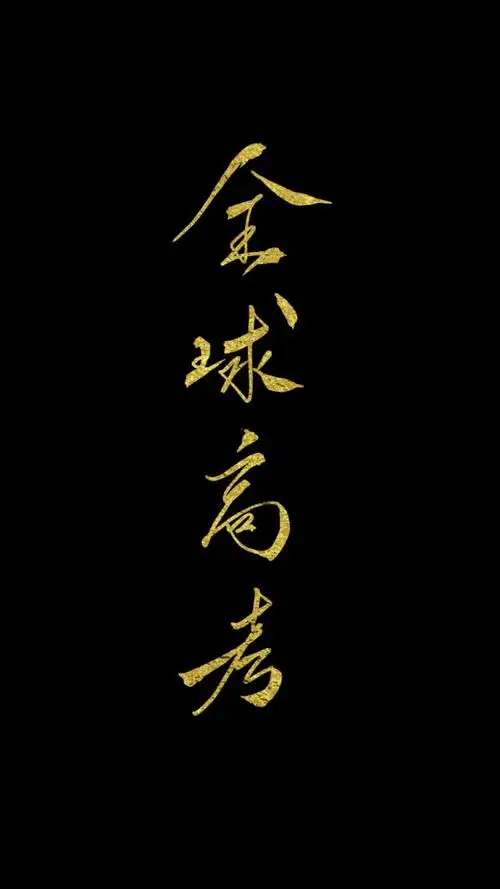 全球高考